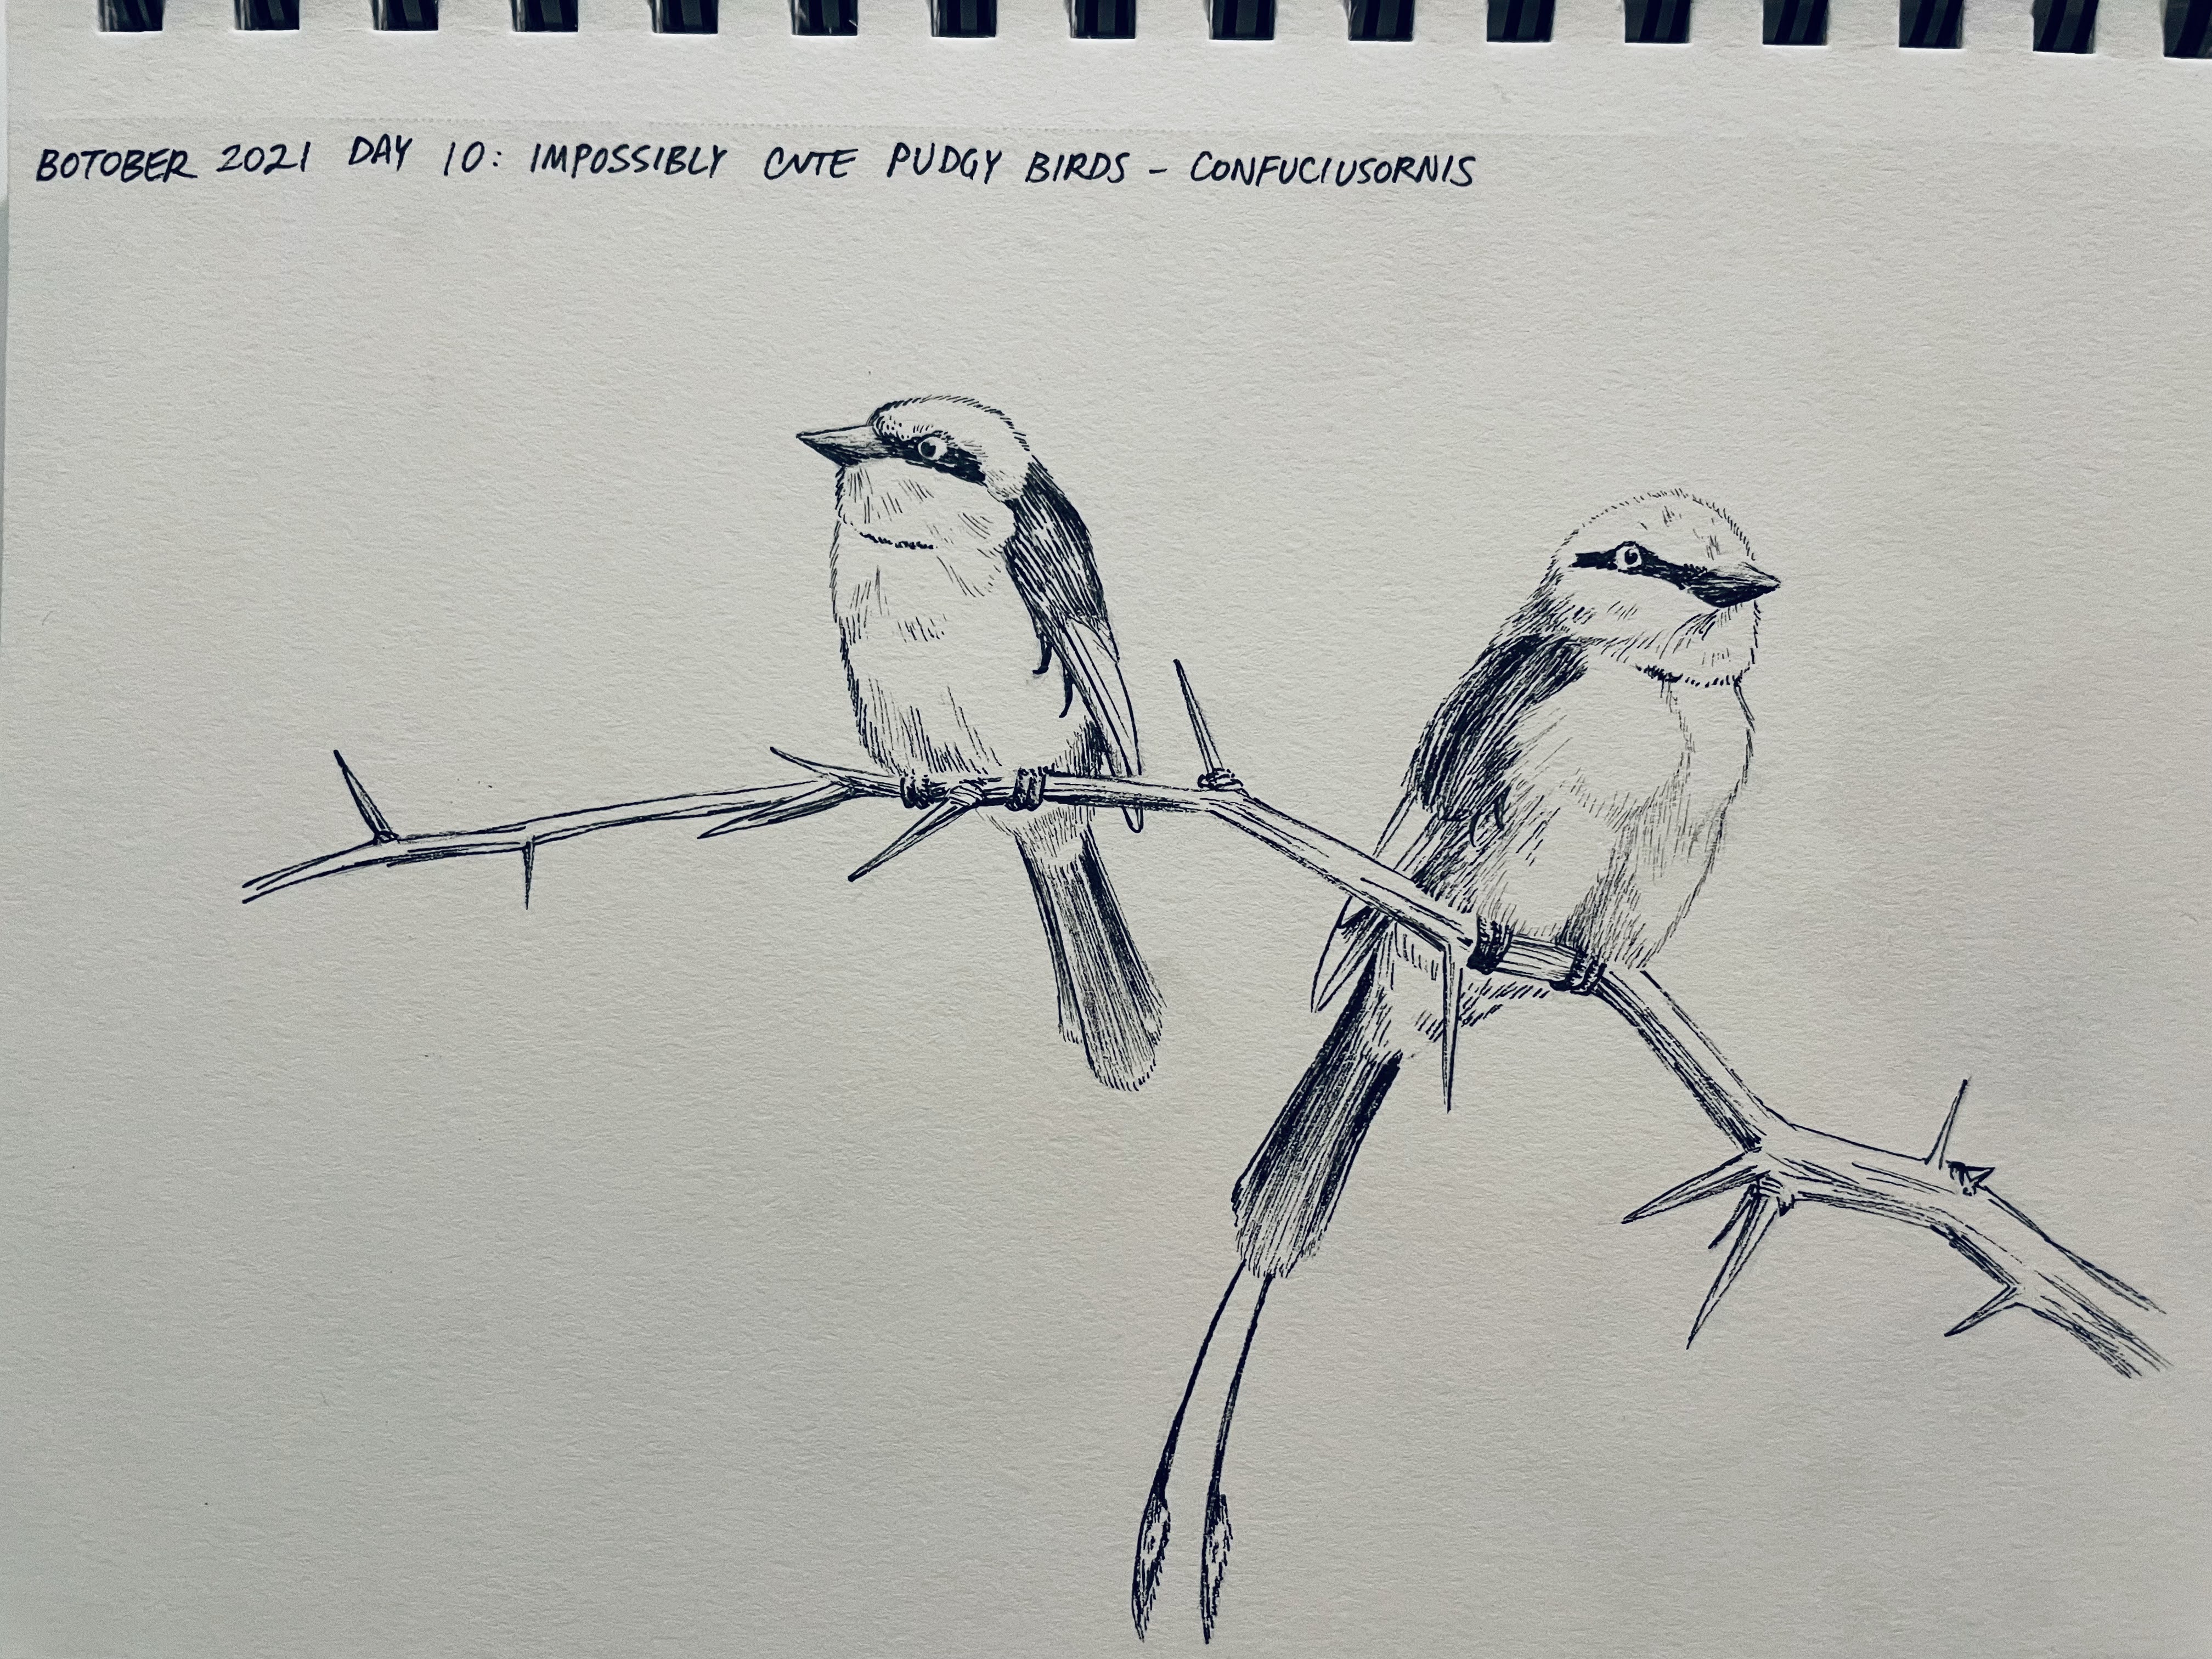 BOTOBER 2021 DAY 10: IMPOSSIBLY CUTE PUDGY BIRDS - CONFUCIUSORNIS